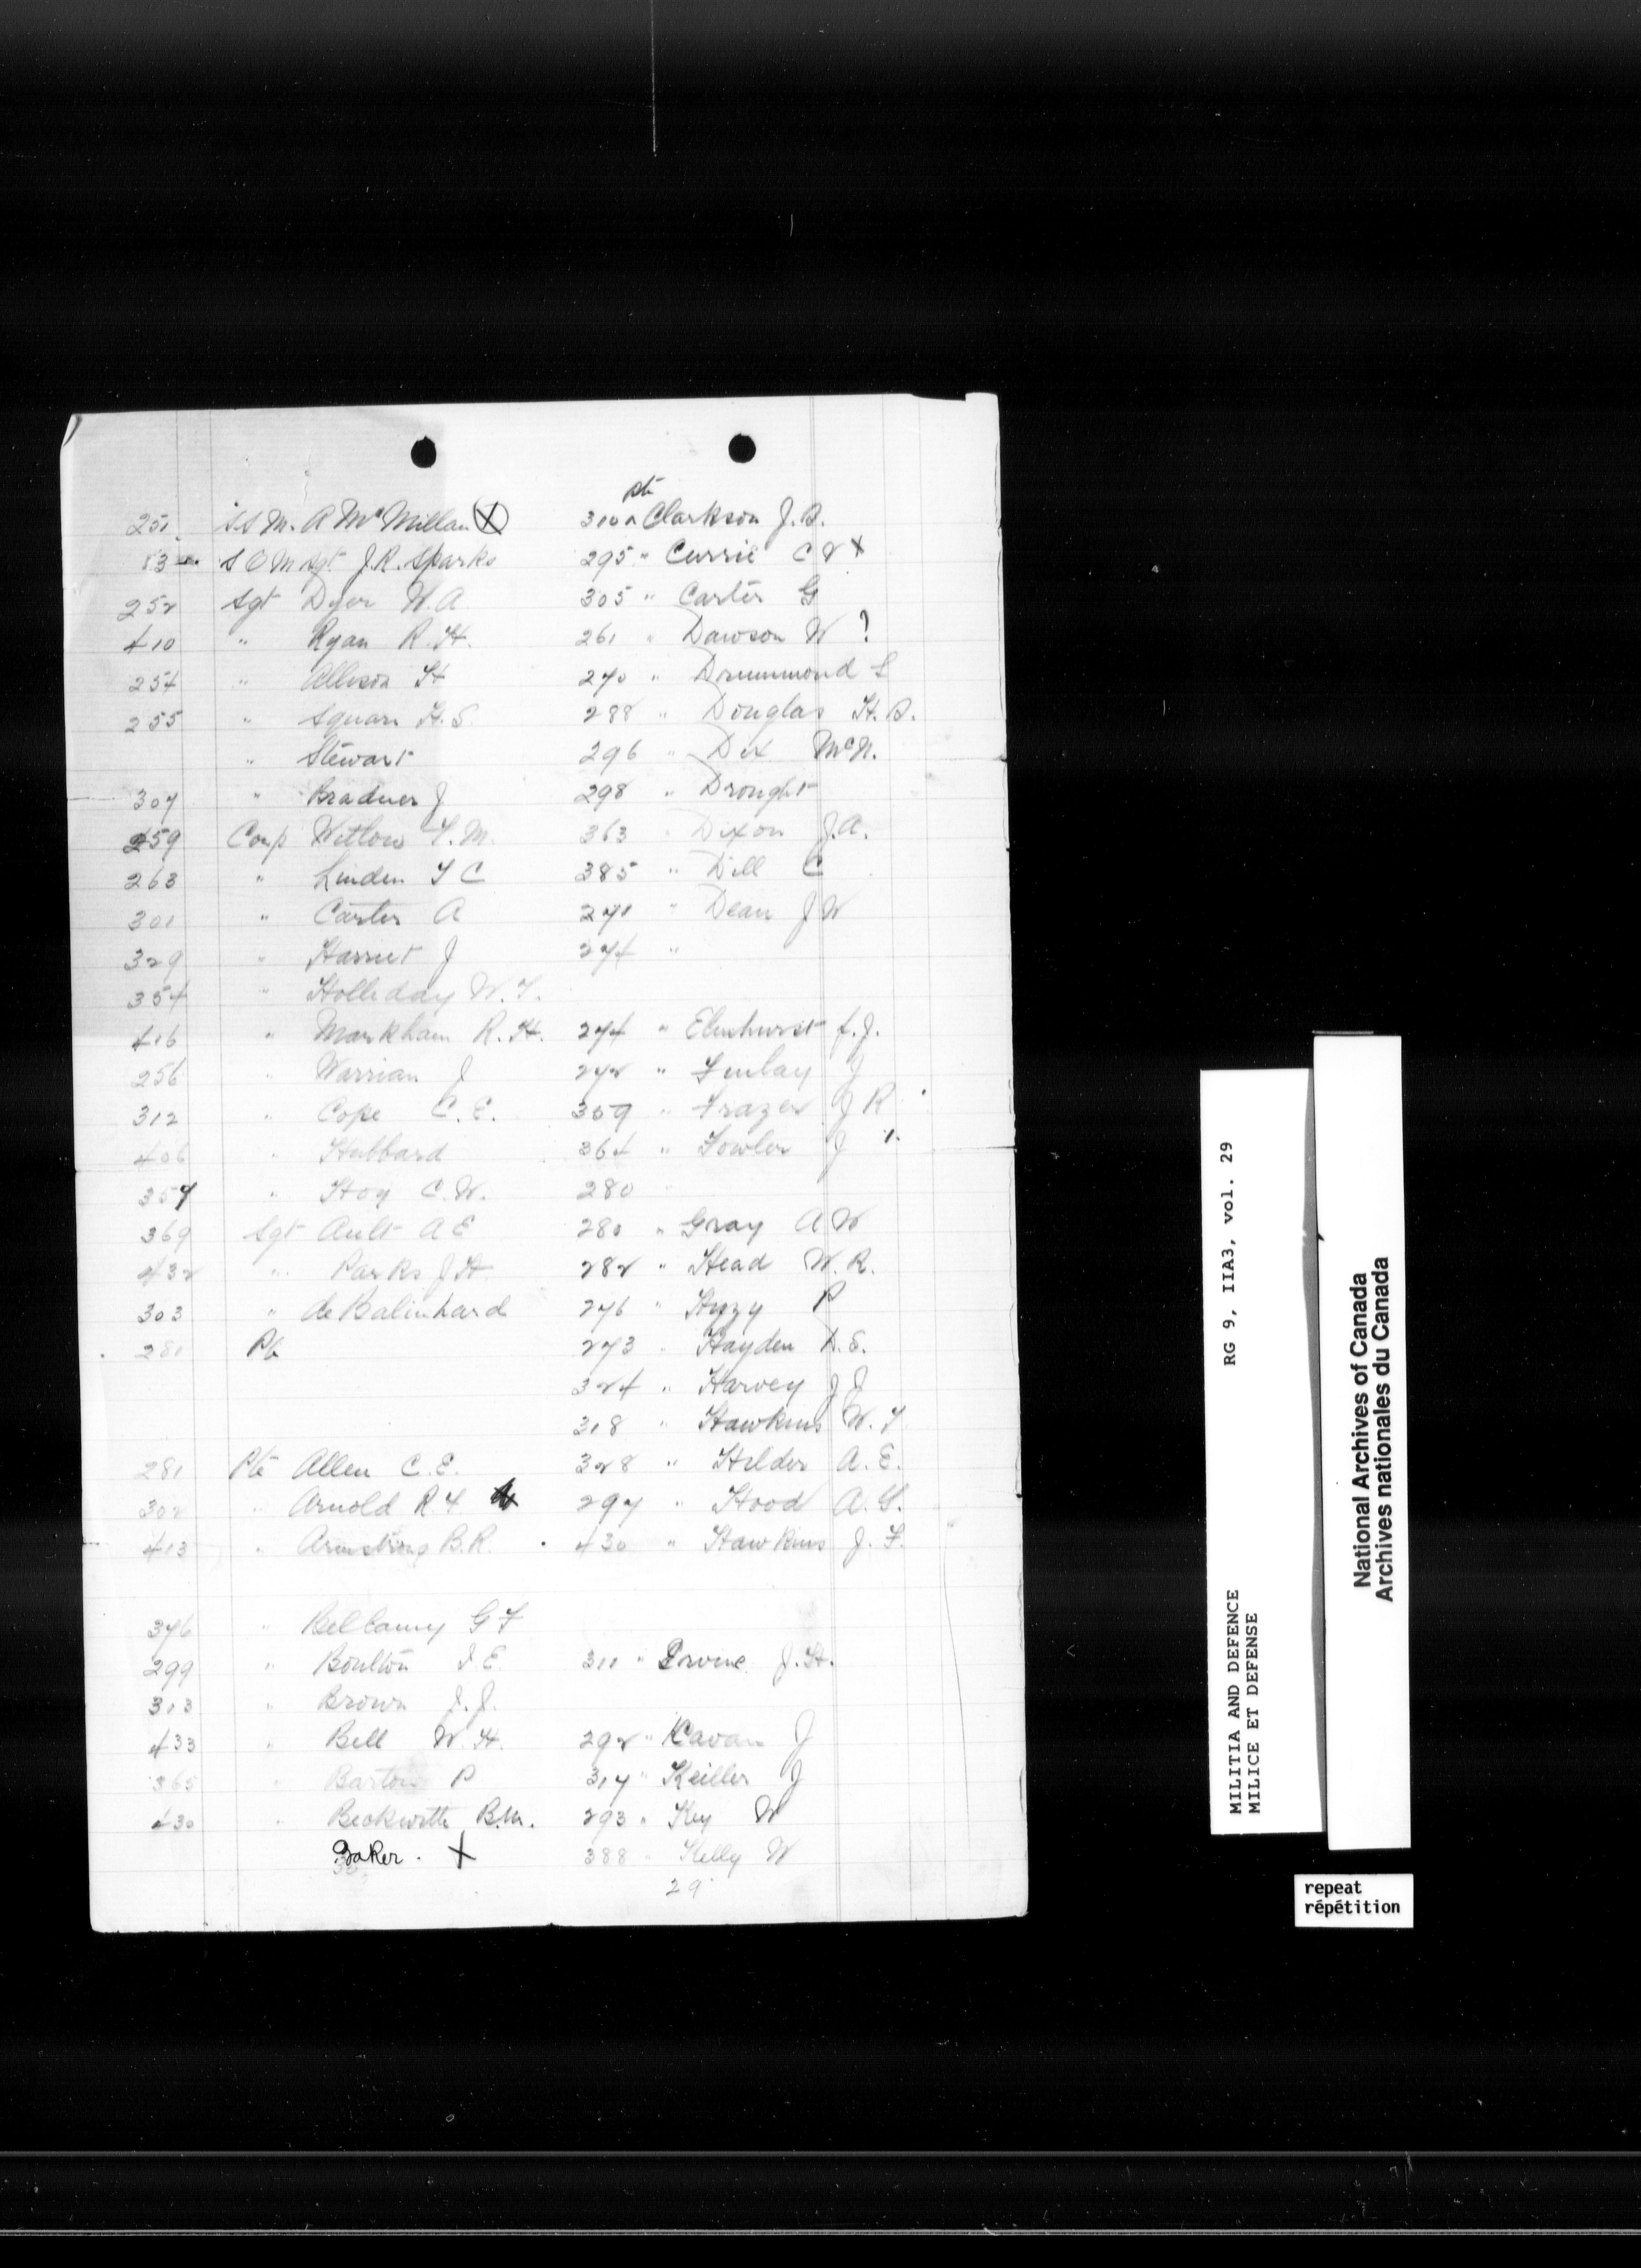 251. S.S.M. A McMillan X
53 S Q M Sgt J.R. Sparks
252 Sgt Dyer W.A.
410 " Ryan R.H.
254 " Allison H
255 " Squars H.S.
" Stewart
307 " Bradner J
259 Corp Witlow T.M.
263 " Linden T C
301 " Carter A
329 " Harriet J
354 " Holliday W.T.
416 " Markham R.H.
256 " Warrian J
312 " Cope C.E.
406 " Hubbard
357 " Hoy C.W.
369 Sgt Ault A E
432 " Parks J.H.
303 " de Balinhard
281 Pte
281 Pte Allen C.E.
302 " Arnold R F
413 " Armstrong B.R.
376 " Bellamy G F
299 " Boulton E.
313 " Brown J.J.
433 " Bell W.H.
365 " Barton P
430 " Beckwith B.M.
Baker. X
Pte
310 Clarkson J.B.
295 " Currie C X
305 " Carter G
261 " Dawson W ?
270 " Drummond L
288 " Douglas H.B.
296 " Dix McN.
298 " Drought
363 " Dixon J.A.
385 " Dill C
271 " Dean J W
274 "
274 " Elmhurst J.
272 " Finlay J
359 " Frazer J R
364 " Fowler J
280
280 " Gray A W
282 " Head W.R.
276 " Huzzy P
273 " Hayden D.S.
324 " Harvey J J
318 " Hawkins W.T.
328 " Hilder A.E.
297 " Hood A.G.
430 " Hawkins J.F.
311 " Irvine J.H.
292 " Kavan J
317 " Keiller J
293 " Key W
388 " Kelly W
29
RG 9, IIA3, vol. 29
MILITIA AND DEFENCE
MILICE ET DEFENSE
National Archives of Canada
Archives nationales du Canada
repeat
répétition